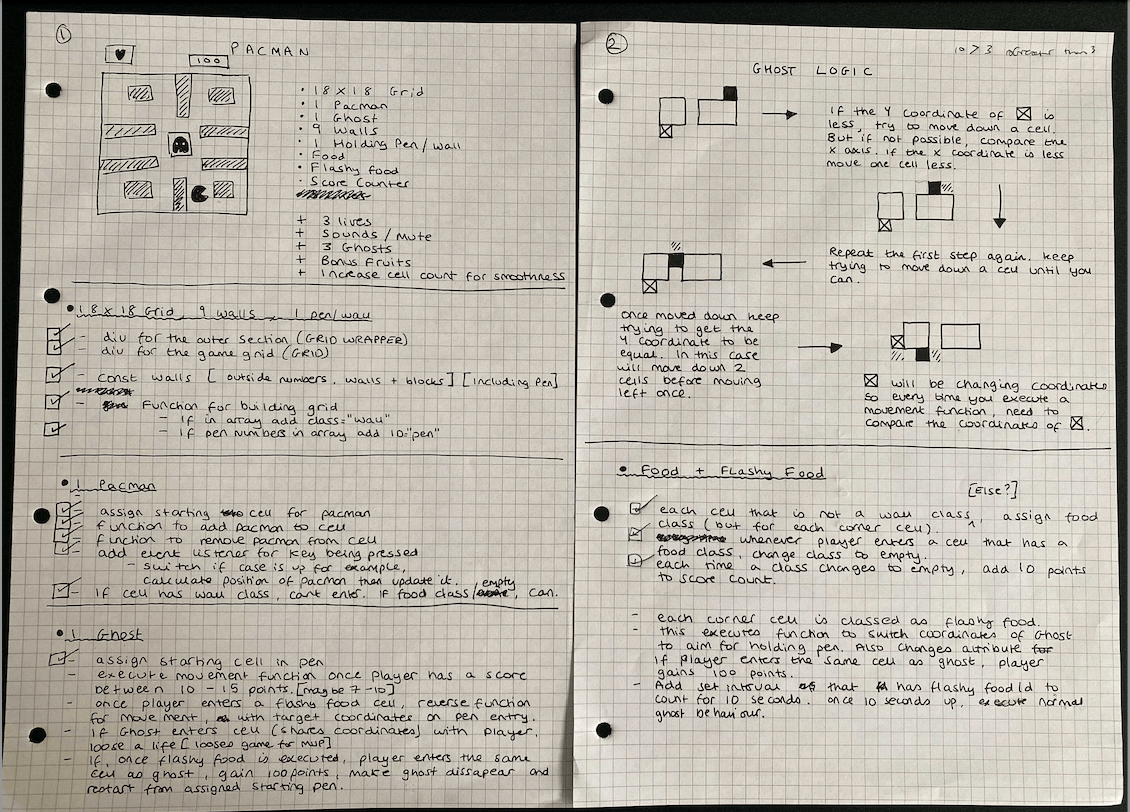 1
PACMAN
100
· 18 X 18 Grid
· 1 Pacman
· 1 Ghost
· 9 Walls
· 1 Holding Pen / wall
· Food
· Flashy food
· Score Counter
+ 3 lives
+ Sounds / Mute
+ 3 Ghosts
+ Bonus Fruits
+ Increase cell count for smoothness
• 18 X 18 Grid, 9 walls, 1 pen/wall
- div for the outer section (GRID WRAPPER)
- div for the game grid (GRID)
- Const walls [outside numbers, walls + blocks] [including pen]
- Function for building grid
- If in array add class="wall"
- If pen numbers in array add ID="pen"
• 1 Pacman
- assign starting cell for pacman
- function to add pacman to cell
- function to remove pacman from cell
- add event listener for key being pressed
- switch if case is up for example,
calculate position of pacman then update it.
- If cell has wall class, cant enter. If food class/empty, can.
• 1 Ghost
- assign starting cell in pen
- execute movement function once player has a score
between 10 - 15 points. [maybe 7-10]
- once player enters a flashy food cell, reverse function
for movement, with target coordinates on pen entry.
- If Ghost enters cell (shares coordinates) with player,
loose a life [looses game for MVP]
- If, once flashy food is executed, player enters the same
cell as ghost, gain 100 points, make ghost dissapear and
restart from assigned starting pen.
2
10 > 3 greater than 3
GHOST LOGIC
If the Y coordinate of ☒ is
less, try to move down a cell.
But if not possible, compare the
X axis. If the X coordinate is less
move one cell less.
Repeat the first step again. keep
trying to move down a cell until you
can.
Once moved down keep
trying to get the
Y coordinate to be
equal. In this case
will move down 2
cells before moving
left once.
☒ will be changing coordinates
so every time you execute a
movement function, need to
compare the coordinates of ☒.
• Food + Flashy Food
[Else?]
- each cell that is not a wall class ^, assign food
class (but for each corner cell).
- whenever player enters a cell that has a
food class, change class to empty.
- each time a class changes to empty, add 10 points
to score count.
- each corner cell is classed as flashy food.
- this executes function to switch coordinates of Ghost
to aim for holding pen. Also changes attribute
if player enters the same cell as ghost, player
gains 100 points.
- Add set interval that has flashy food Id to
count for 10 seconds. once 10 seconds up, execute normal
ghost behaviour.